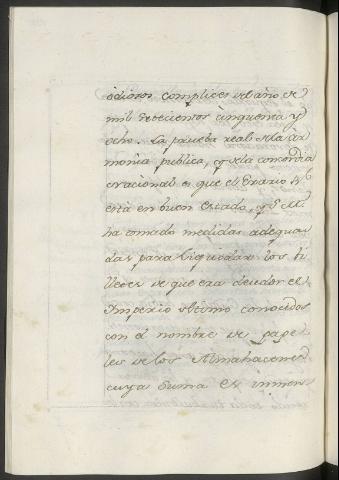 odiosos complices del año de
mil setecientos cinquenta y
ocho. La prueba real de la ar
monia publica, q.e de la concordia
es que el Erario R.l
está en buen estado, q.e S. M.
ha tomado medidas adequa
das para liquidar los bi
lletes de que era deudor el
Imperio conocidos
con el nombre de pape
les de los Almahacenes
cuya suma es inmen